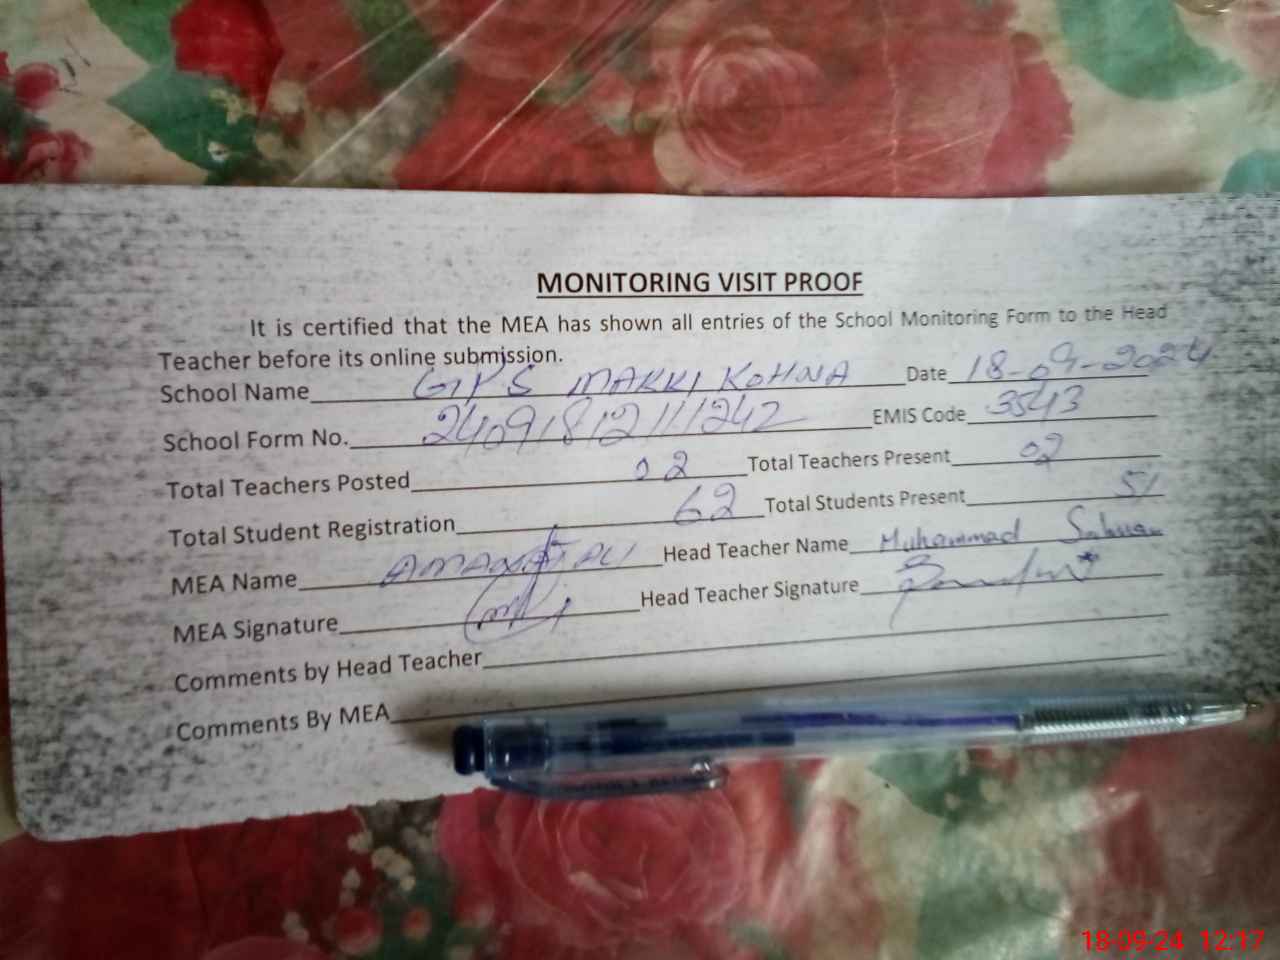 MONITORING VISIT PROOF
It is certified that the MEA has shown all entries of the School Monitoring Form to the Head
Teacher before its online submission.
School Name GPS MAKKI KOHNA Date 18-09-2024
School Form No. 2409181211242 EMIS Code 3543
Total Teachers Posted 02 Total Teachers Present 02
Total Student Registration 62 Total Students Present 51
MEA Name AMANAT ALI Head Teacher Name Muhammad
MEA Signature Head Teacher Signature
Comments by Head Teacher
Comments By MEA
18-09-24 12:17